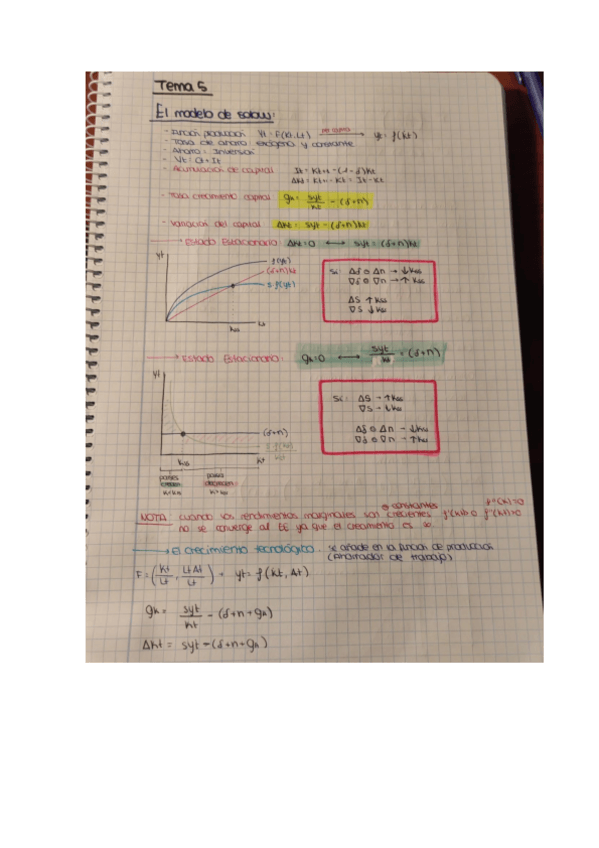 Tema 5
El modelo de solow:
- Función producción Yt = F(Kt, Lt) per cápita → yt = f(kt)
- Tasa de ahorro exógena y constante
- Ahorro = Inversión
- Yt = Ct + It
- Acumulación de capital It = Kt+1 - (1-δ)Kt
ΔKt = Kt+1 - Kt = It - δKt
- Tasa crecimiento capital gk = syt/kt - (δ+n)
- Variación del capital Δkt = syt - (δ+n)kt
→ Estado Estacionario Δkt = 0 ⟷ syt = (δ+n)kt
yt
f(yt)
(δ+n)kt
s f(yt)
kss
kt
Si: Δδ o Δn → ↓kss
∇δ o ∇n → ↑kss
ΔS ↑kss
∇S ↓kss
→ Estado Estacionario: gk = 0 ⟷ syt/kt = (δ+n)
yt
(δ+n)
kss
kt
países crecen
países decrecen
Si: ΔS → ↑kss
∇S → ↓kss
Δδ o Δn → ↓kss
∇δ o ∇n → ↑kss
o constantes f''(k)=0
NOTA cuando los rendimientos marginales son crecientes f'(k)>0 f''(k)>0
no se converge al EE ya que el crecimiento es ∞
→ El crecimiento tecnológico: se añade en la función de producción
trabajo)
F = (Kt/Lt, LtAt/Lt) → yt = f(kt, At)
gk = syt/kt - (δ+n+gA)
Δkt = syt - (δ+n+gA)